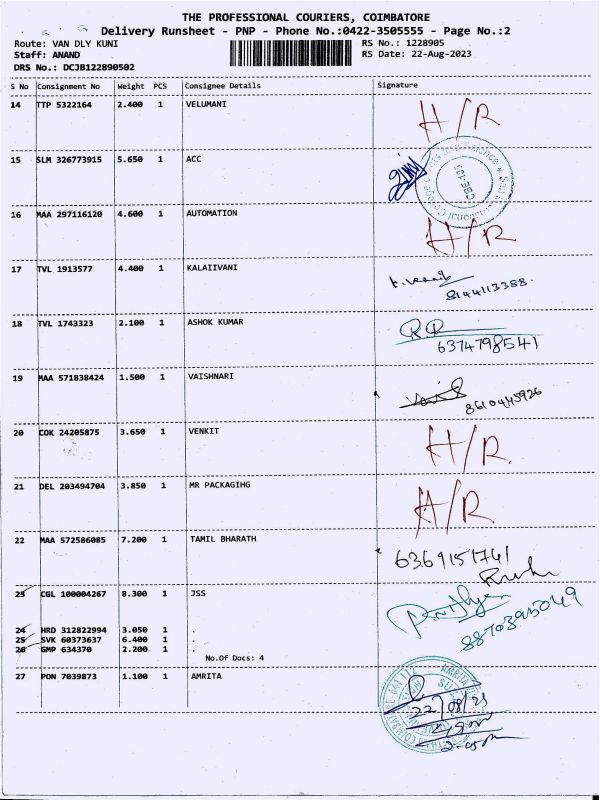 THE PROFESSIONAL COURIERS, COIMBATORE
Delivery Runsheet - PNP - Phone No.:0422-3505555 - Page No.:2
Route: VAN DLY KUNI RS No.: 1228905
Staff: ANAND RS Date: 22-Aug-2023
DRS No.: DCJB122890502
S No Consignment No Weight PCS Consignee Details Signature
14 TTP 5322164 2.400 1 VELUMANI H/R
15 SLM 326773915 5.650 1 ACC
CSE-105
16 MAA 297116120 4.600 1 AUTOMATION H/R
17 TVL 1913577 4.400 1 KALAIIVANI
8144113388
18 TVL 1743323 2.100 1 ASHOK KUMAR
6374798541
19 MAA 571838424 1.500 1 VAISHNARI
8610445926
20 COK 24205875 3.650 1 VENKIT H/R.
21 DEL 203494704 3.850 1 MR PACKAGIHG H/R
22 MAA 572586085 7.200 1 TAMIL BHARATH
6369151741
23 CGL 100004267 8.300 1 JSS
8870395049
24 HRD 312822994 3.050 1 .
25 SVK 60373637 6.400 1 .
26 GMP 634370 2.200 1 .
No.Of Docs: 4
27 PON 7039873 1.100 1 AMRITA
22/08/23